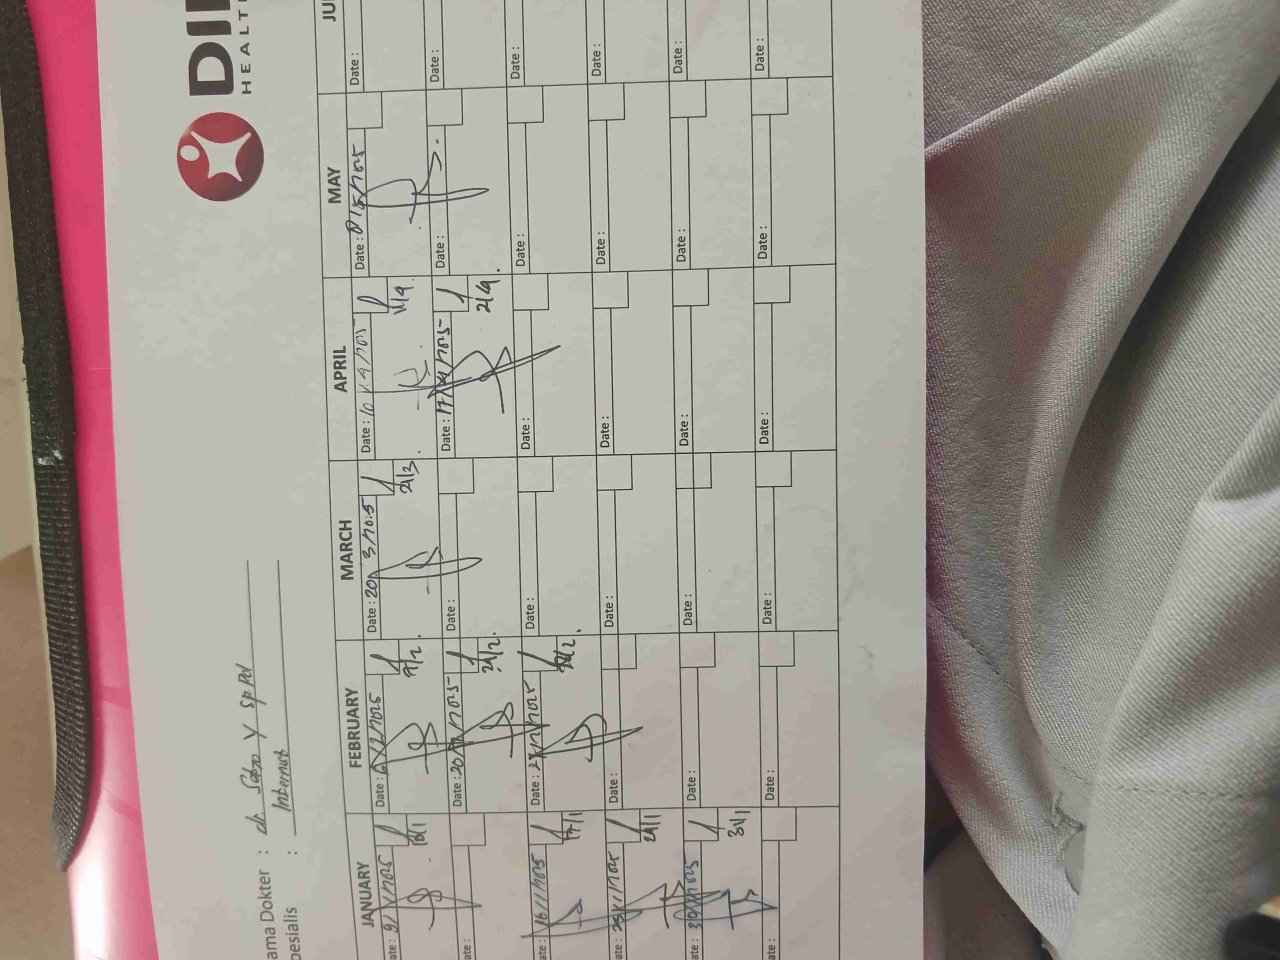 DI
HEALT
ama Dokter : dr Sebo Y SpPd
pesialis : Internist
JANUARY FEBRUARY MARCH APRIL MAY JU
ate : 9/1/2025 Date : 6/2/2025 Date : 20/3/2025 Date : 10/4/2025 Date : 8/5/2025 Date :
10/1 7/2. 21/3 11/4.
ate : Date : 20/2/2025 Date : Date : 17/4/2025 Date : Date :
21/2. 21/4.
16/1/2025 Date : 27/2/2025 Date : Date : Date : Date :
17/1 28/2.
ate : 23/1/2025 Date : Date : Date : Date : Date :
24/1
ate : 30/1/2025 Date : Date : Date : Date : Date :
31/1
ate : Date : Date : Date : Date : Date :